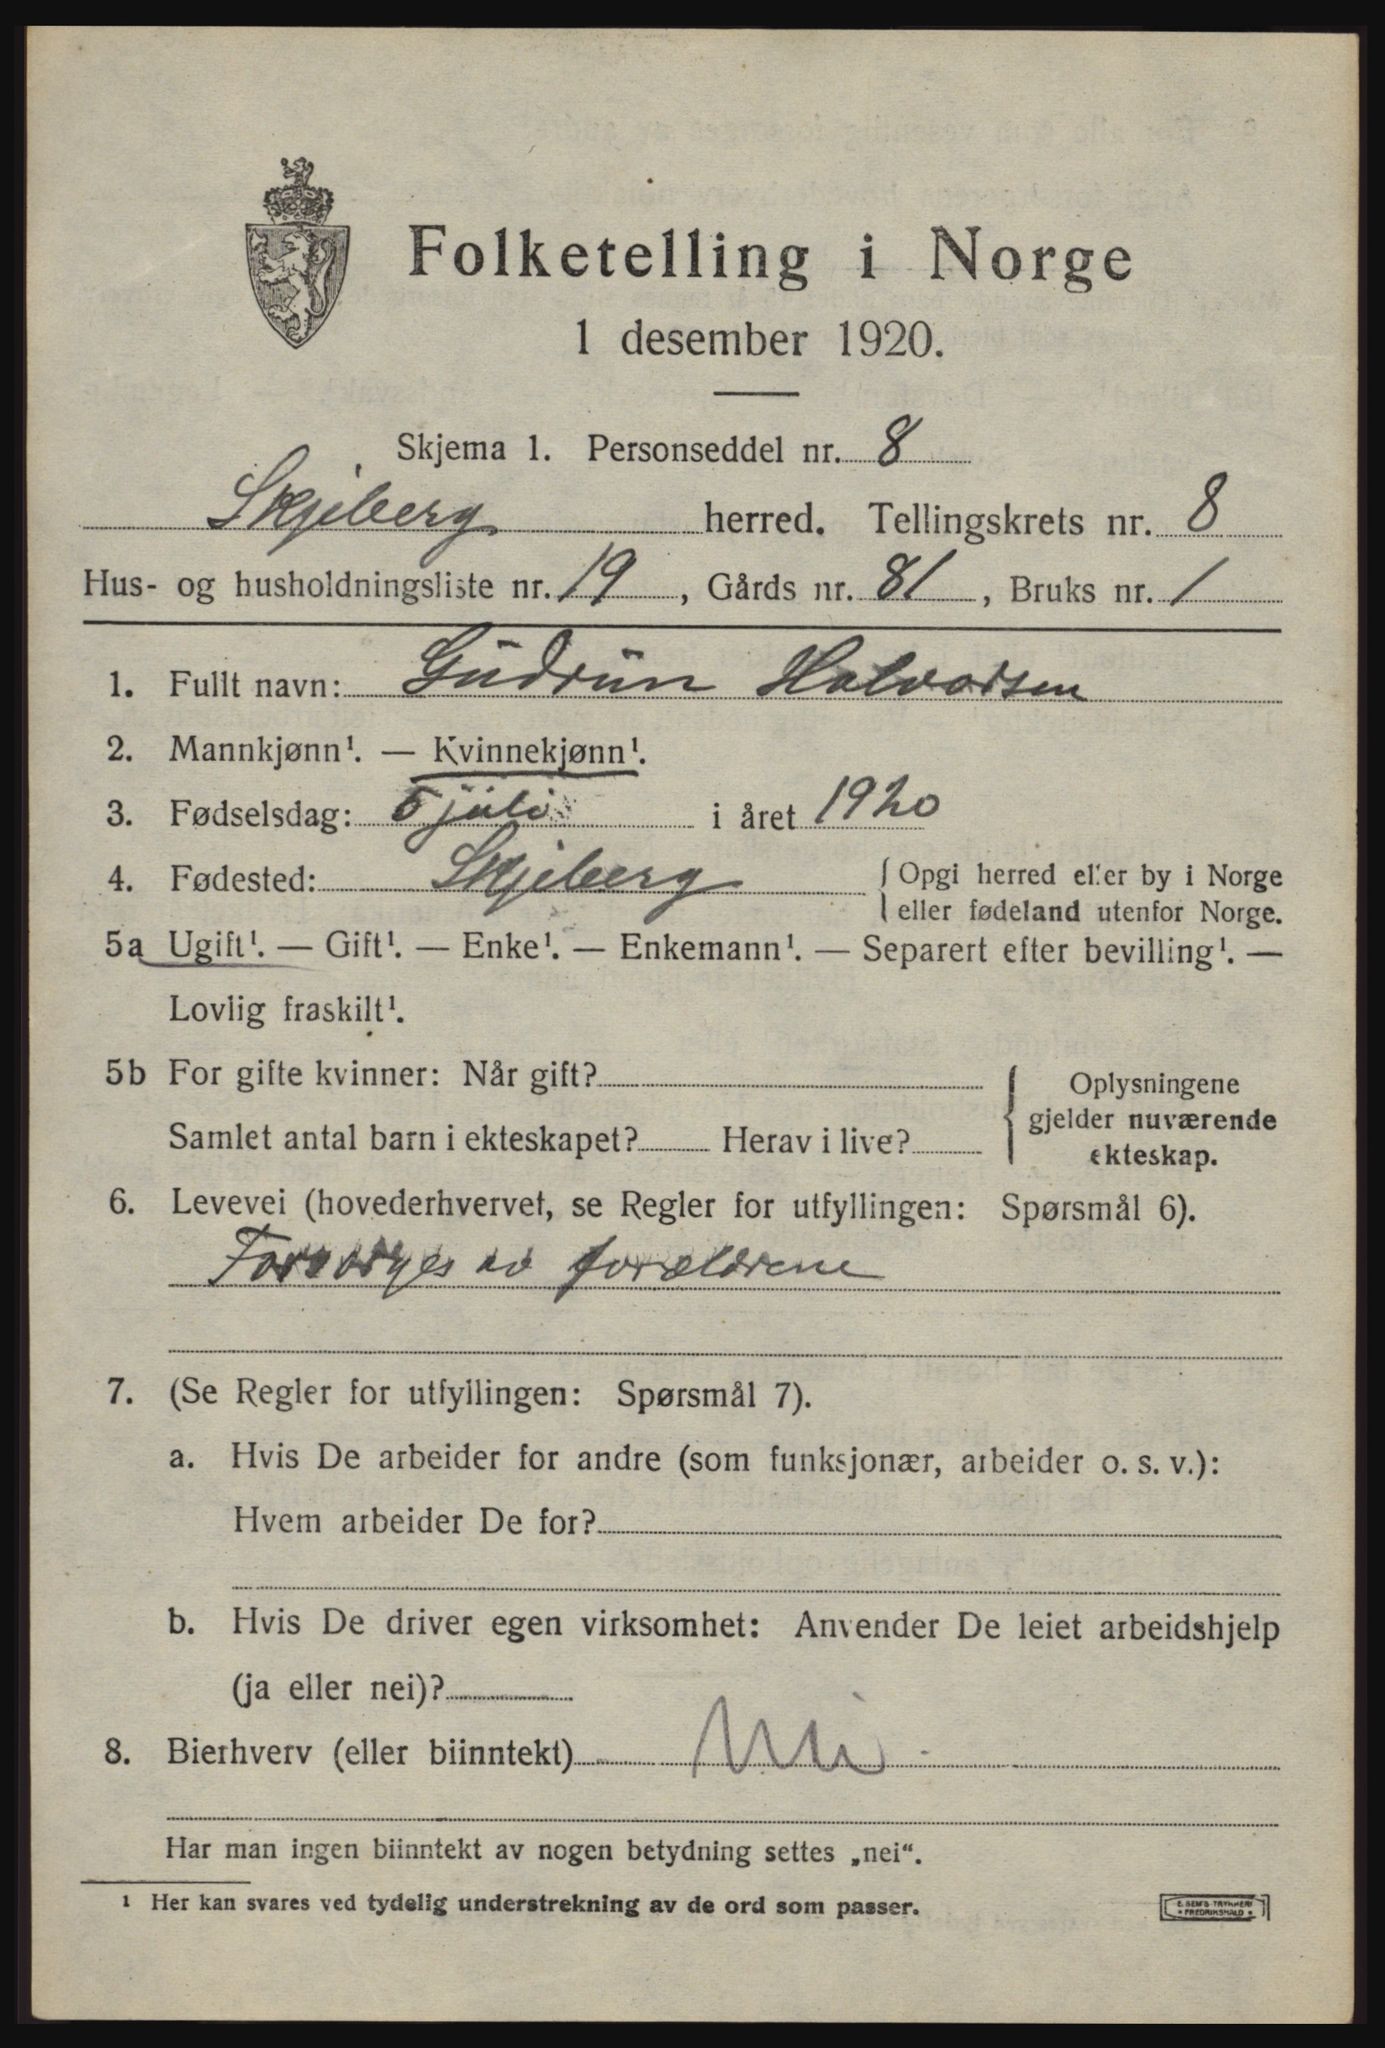 Folketelling i Norge
1 desember 1920.
Skjema 1. Personseddel nr. 8
Skjeberg herred. Tellingskrets nr. 8
Hus- og husholdningsliste nr. 19, Gårds nr. 81, Bruks nr. 1
1. Fullt navn: Gudrun Halvorsen
2. Mannkjønn¹. — Kvinnekjønn¹.
3. Fødselsdag: 5 juli i året 1920
4. Fødested: Skjeberg { Opgi herred eller by i Norge
eller fødeland utenfor Norge.
5a Ugift¹. — Gift¹. — Enke¹. — Enkemann¹. — Separert efter bevilling¹. —
Lovlig fraskilt¹.
5b For gifte kvinner: Når gift?
Samlet antal barn i ekteskapet? Herav i live?
Oplysningene
gjelder nuværende
ekteskap.
6. Levevei (hovederhvervet, se Regler for utfyllingen: Spørsmål 6).
Forsørges av forældrene
7. (Se Regler for utfyllingen: Spørsmål 7).
a. Hvis De arbeider for andre (som funksjonær, arbeider o. s. v.):
Hvem arbeider De for?
b. Hvis De driver egen virksomhet: Anvender De leiet arbeidshjelp
(ja eller nei)?
8. Bierhverv (eller biinntekt) Nei
Har man ingen biinntekt av nogen betydning settes „nei“.
¹ Her kan svares ved tydelig understrekning av de ord som passer.
E. SEM'S TRYKKERI
• FREDRIKSHALD •